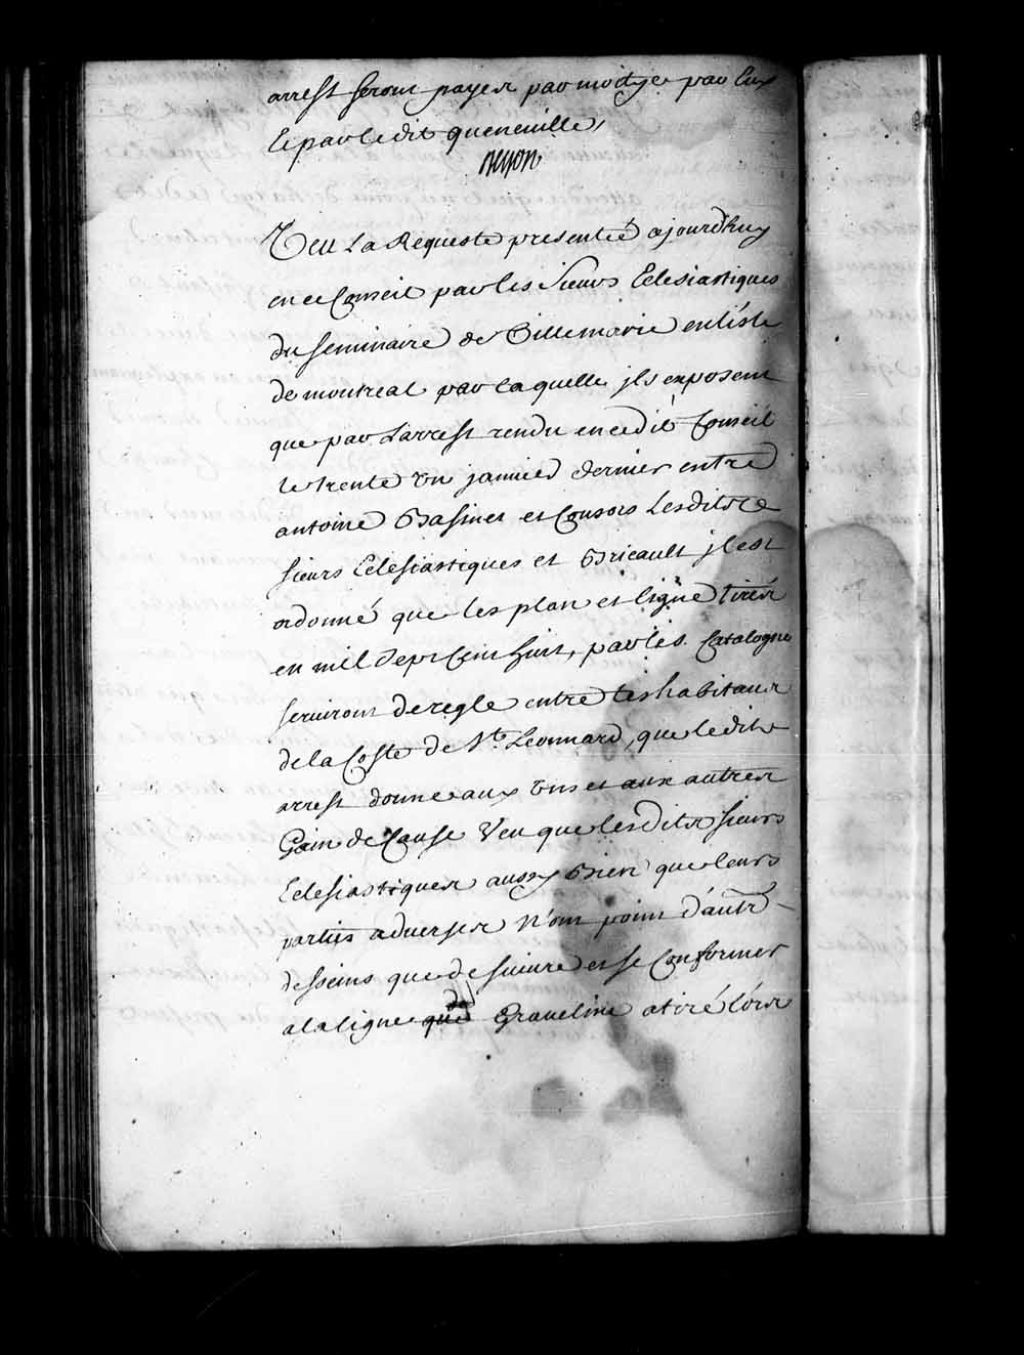 arrest seront payez par moitye par Eux
Et par ledit queneuille,
Veu La Requeste presentée ajourdhuy
en ce Conseil par les Sieurs Eclesiastiques
du Seminaire de Villemarie en l'isle
de montreal par laquelle jls exposent
que par L'arrest rendu en cedit Conseil
le trente un januier dernier entre
antoine Basinet et Consors Lesdits
sieurs Eclesiastiques et Bricault jl est
ordonné que les plan et ligne tirés
en mil sept Cent huit, par les. Catalogne
seruiront de regle entre les habitans
de la Coste de St. Leonnard, que ledit
arrest donne aux uns et aux autres
Gain de Cause Veu que lesdits sieurs
Eclesiastiques aussy Bien que leurs
parties aduerses N'ont point d'autre
desseins que de suiure et se Conformer
a la ligne que Graueline a tiré lors